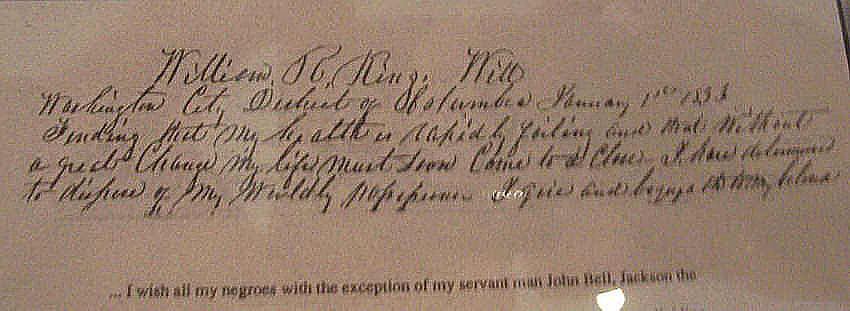 William R. King. Will
Washington City District of Columbia January 1st 1853
Finding that my health is rapidly failing and that without
a great change my life must soon come to a close I have determined
to dispose of my worldly possessions I give and to my
... I wish all my negroes with the exception of my servant man John Bell, Jackson the